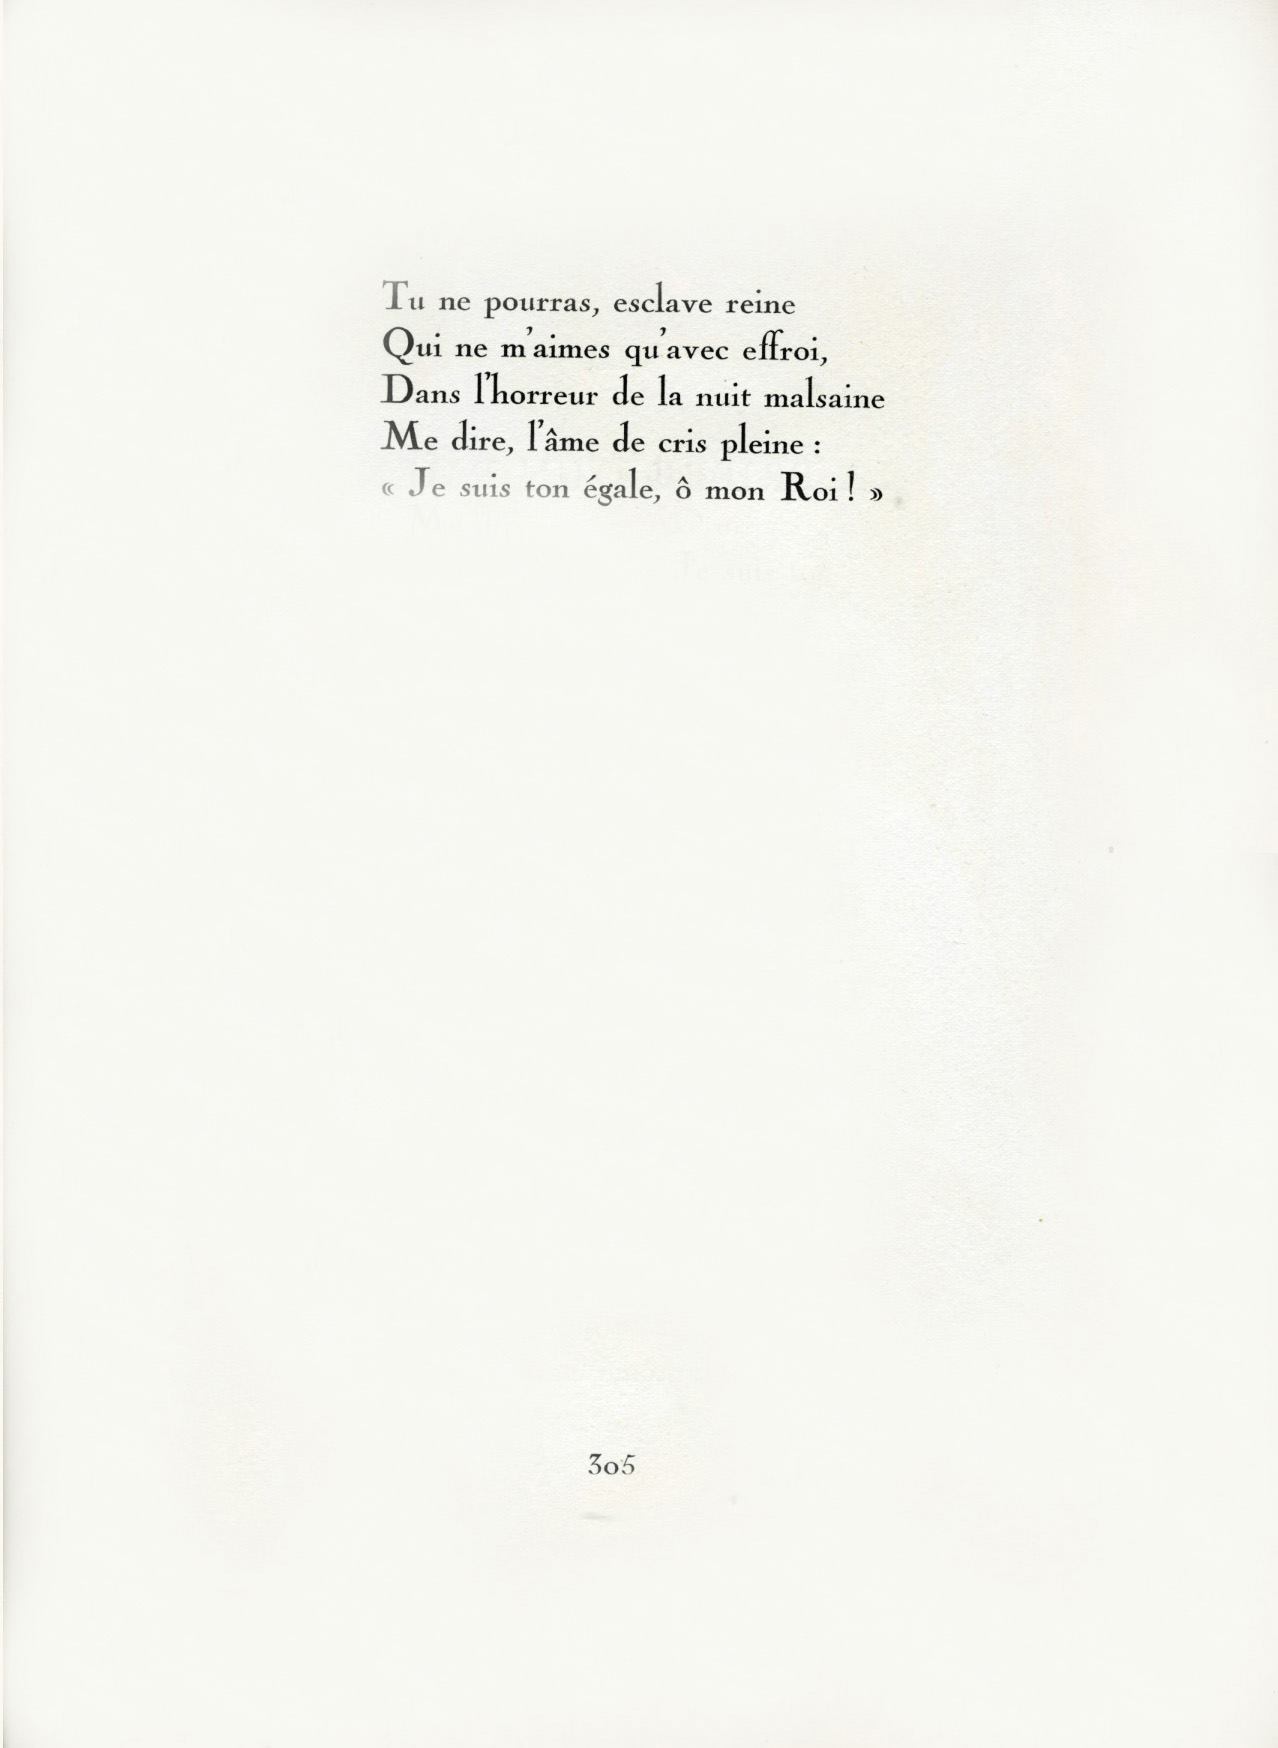 Tu ne pourras, esclave reine
Qui ne m'aimes qu'avec effroi,
Dans l'horreur de la nuit malsaine
Me dire, l'âme de cris pleine :
« Je suis ton égale, ô mon Roi ! »
305